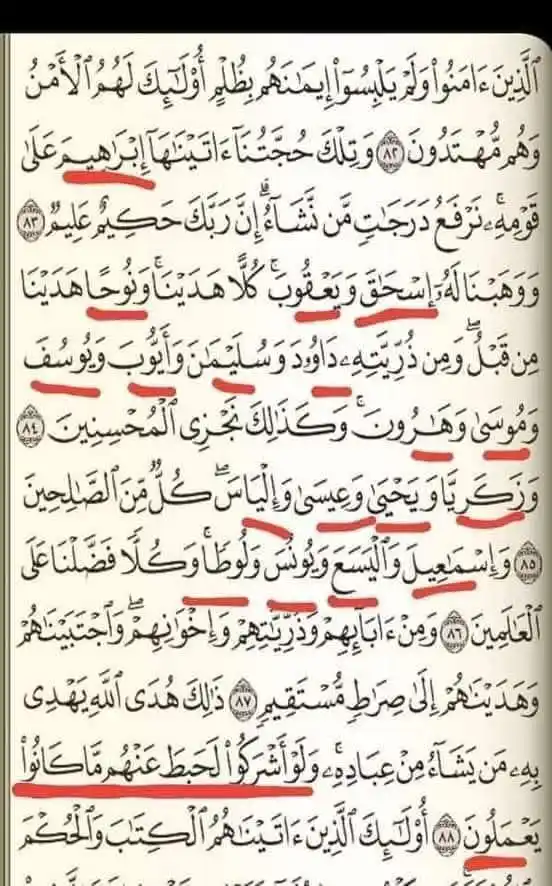 ٱلَّذِينَ ءَامَنُوا۟ وَلَمْ يَلْبِسُوٓا۟ إِيمَٰنَهُم بِظُلْمٍ أُو۟لَٰٓئِكَ لَهُمُ ٱلْأَمْنُ
وَهُم مُّهْتَدُونَ ٨٢ وَتِلْكَ حُجَّتُنَآ ءَاتَيْنَٰهَآ إِبْرَٰهِيمَ عَلَىٰ
قَوْمِهِۦ ۚ نَرْفَعُ دَرَجَٰتٍ مَّن نَّشَآءُ ۗ إِنَّ رَبَّكَ حَكِيمٌ عَلِيمٌ ٨٣
وَوَهَبْنَا لَهُۥٓ إِسْحَٰقَ وَيَعْقُوبَ ۚ كُلًّا هَدَيْنَا ۚ وَنُوحًا هَدَيْنَا
مِن قَبْلُ ۖ وَمِن ذُرِّيَّتِهِۦ دَاوُۥدَ وَسُلَيْمَٰنَ وَأَيُّوبَ وَيُوسُفَ
وَمُوسَىٰ وَهَٰرُونَ ۚ وَكَذَٰلِكَ نَجْزِى ٱلْمُحْسِنِينَ ٨٤
وَزَكَرِيَّا وَيَحْيَىٰ وَعِيسَىٰ وَإِلْيَاسَ ۖ كُلٌّ مِّنَ ٱلصَّٰلِحِينَ
٨٥ وَإِسْمَٰعِيلَ وَٱلْيَسَعَ وَيُونُسَ وَلُوطًا ۚ وَكُلًّا فَضَّلْنَا عَلَى
ٱلْعَٰلَمِينَ ٨٦ وَمِنْ ءَابَآئِهِمْ وَذُرِّيَّٰتِهِمْ وَإِخْوَٰنِهِمْ ۖ وَٱجْتَبَيْنَٰهُمْ
وَهَدَيْنَٰهُمْ إِلَىٰ صِرَٰطٍ مُّسْتَقِيمٍ ٨٧ ذَٰلِكَ هُدَى ٱللَّهِ يَهْدِى
بِهِۦ مَن يَشَآءُ مِنْ عِبَادِهِۦ ۚ وَلَوْ أَشْرَكُوا۟ لَحَبِطَ عَنْهُم مَّا كَانُوا۟
يَعْمَلُونَ ٨٨ أُو۟لَٰٓئِكَ ٱلَّذِينَ ءَاتَيْنَٰهُمُ ٱلْكِتَٰبَ وَٱلْحُكْمَ